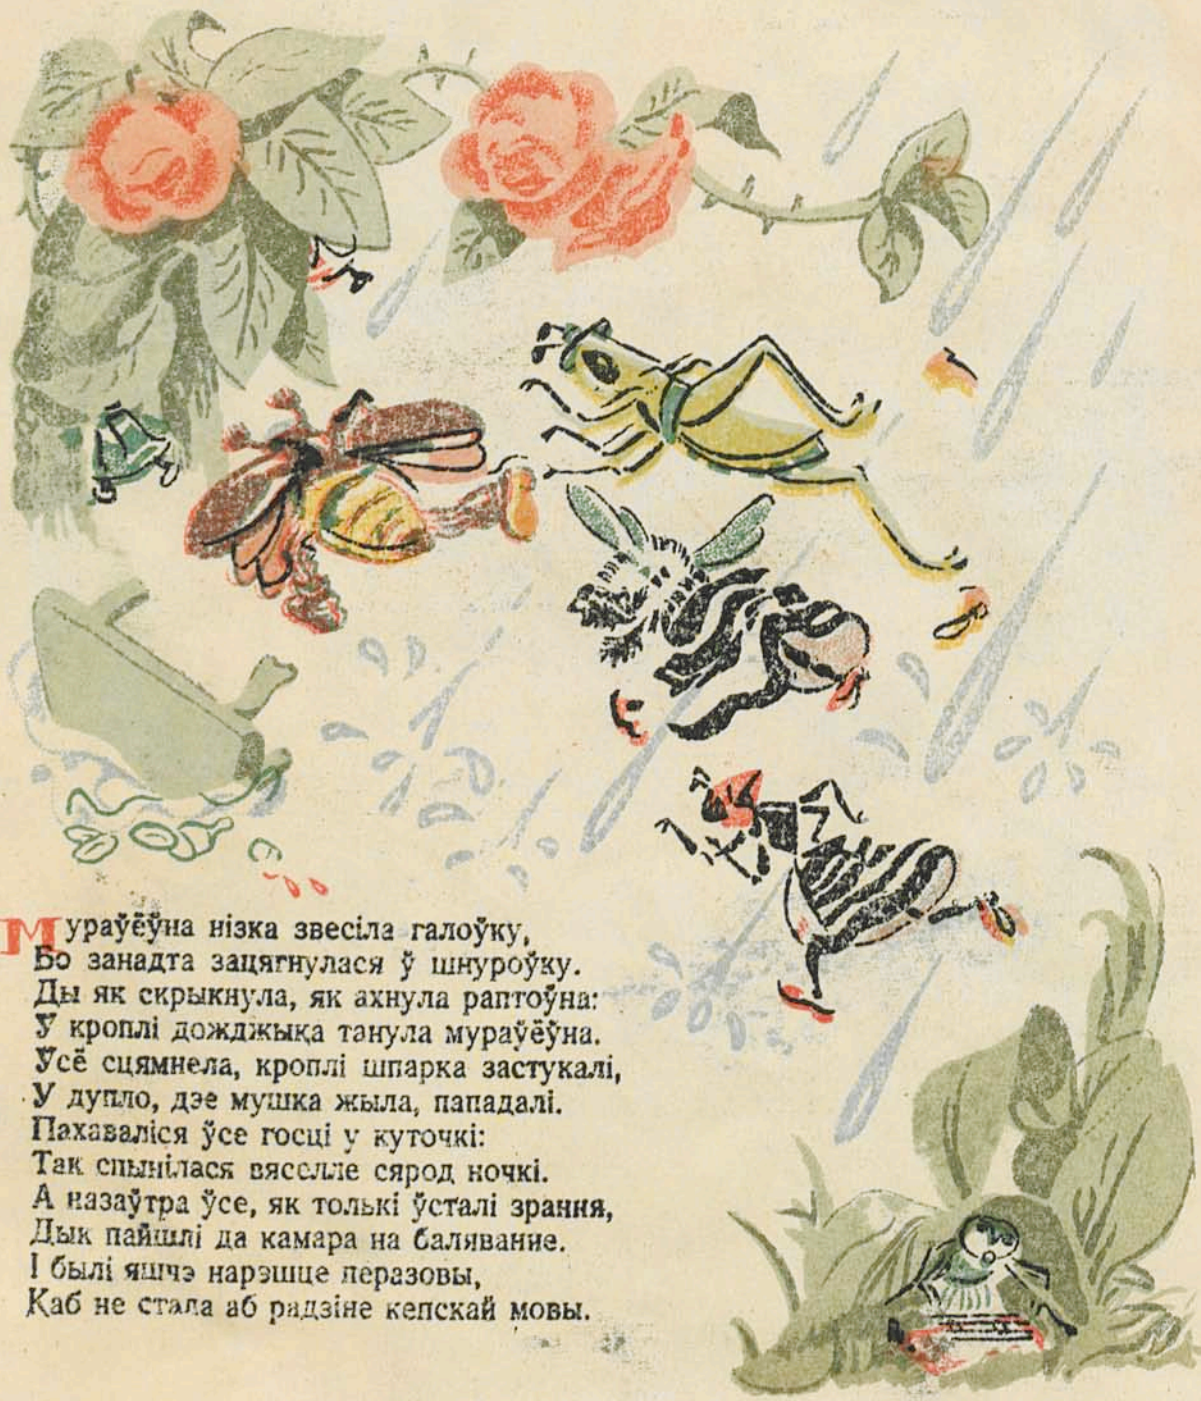 Мураўёўна нізка звесіла галоўку,
Бо занадта зацягнулася ў шнуроўку.
Ды як скрыкнула, як ахнула раптоўна:
У кроплі дожджыка танула мураўёўна.
Ўсё сцямнела, кроплі шпарка застукалі,
У дупло, дзе мушка жыла, пападалі.
Пахаваліся ўсе госці у куточкі:
Так спынілася вяселле сярод ночкі.
А назаўтра ўсе, як толькі ўсталі зрання,
Дык пайшлі да камара на баляванне.
І былі яшчэ нарэшце перазовы,
Қаб не стала аб радзіне кепскай мовы.